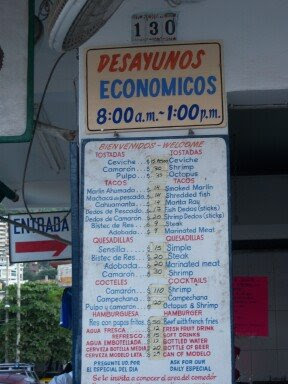 130
DESAYUNOS
ECONOMICOS
8:00 a.m. ~ 1:00 p.m.
BIENVENIDOS - WELCOME
TOSTADAS TOSTADAS
Ceviche Ceviche
Camarón Shrimp
Pulpo Octopus
TACOS TACOS
Marlin Ahumado 14 Smoked Marlin
Machaca de pescado 14 Shredded fish
Cahuamanta 14 Manta Ray
Dedos de Pescado Fish Dedos (sticks)
Dedos de Camarón Shrimp Dedos (sticks)
Bistec de Res 9 Steak
Adobada 9 Marinated Meat
QUESADILLAS QUESADILLAS
Sensilla 15 Simple
Bistec de Res 20 Steak
Adobada 20 Marinated meat
Camarón 30 Shrimp
COCTELES COCKTAILS
Camarón 110 Shrimp
Campechana Campechana
Pulpo y camarón Octopus & Shrimp
HAMBURGUESA HAMBURGER
Res con papas fritas Beef with french fries
AGUA FRESCA 12 FRESH FRUIT DRINK
REFRESCO SOFT DRINK
AGUA EMBOTELLADA BOTTLED WATER
CERVEZA BOTELLA MEDIA BOTTLE OF BEER
CERVEZA MODELO LATA CAN OF MODELO
PREGUNTE POR ASK FOR OUR
EL ESPECIAL DEL DIA DAILY ESPECIAL
Se le invita a conocer el area del comedor
ENTRADA